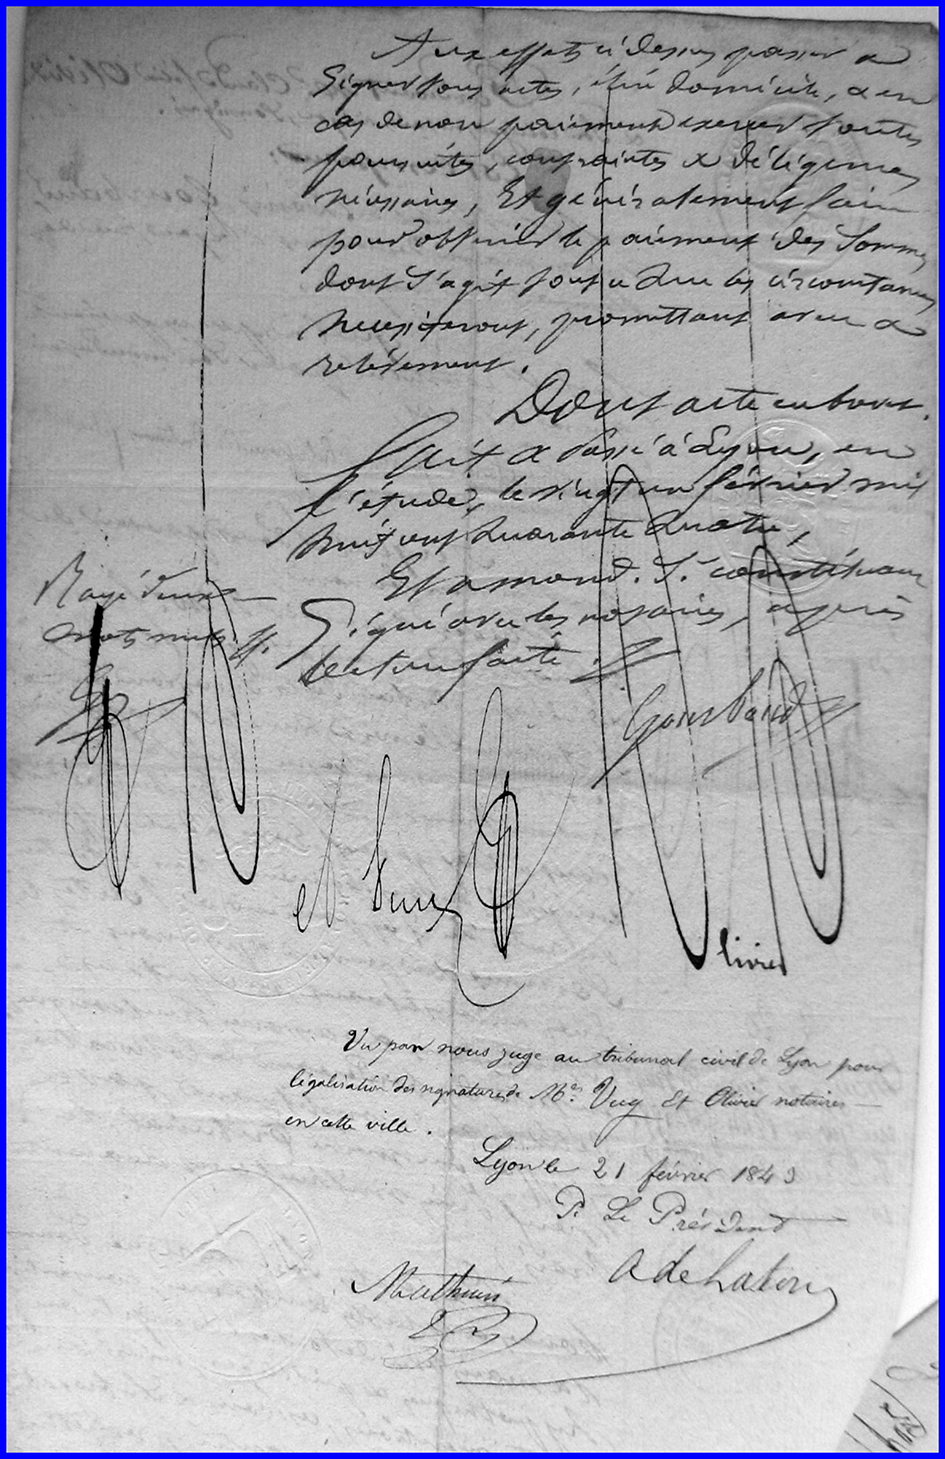 Aux effets ci dessus passer &
Signer tous actes, élire domicile, & en
cas de non paiement exercer toutes
poursuites, contraintes & diligences
nécessaires, Et généralement faire
pour obtenir le paiement des Sommes
dont S'agit tout ce que les circonstances
necessiteront, promettant aveu &
relèvement.
Dont acte en brevet.
fait & Passé à Lyon, en
l'étude, le vingt un février mil
huit cent quarante quatre,
Et a mond. S. constituant
Signé avec les notaires, après
lecture faite
Rayé deux
mots nuls
Gourbaud
Olivier
Vu par nous juge au tribunal civil de Lyon pour
légalisation des signatures de Mes. Vuy Et Olivier notaires
en cette ville.
Lyon le 21 février 1843
P. Le Président
Mathieu